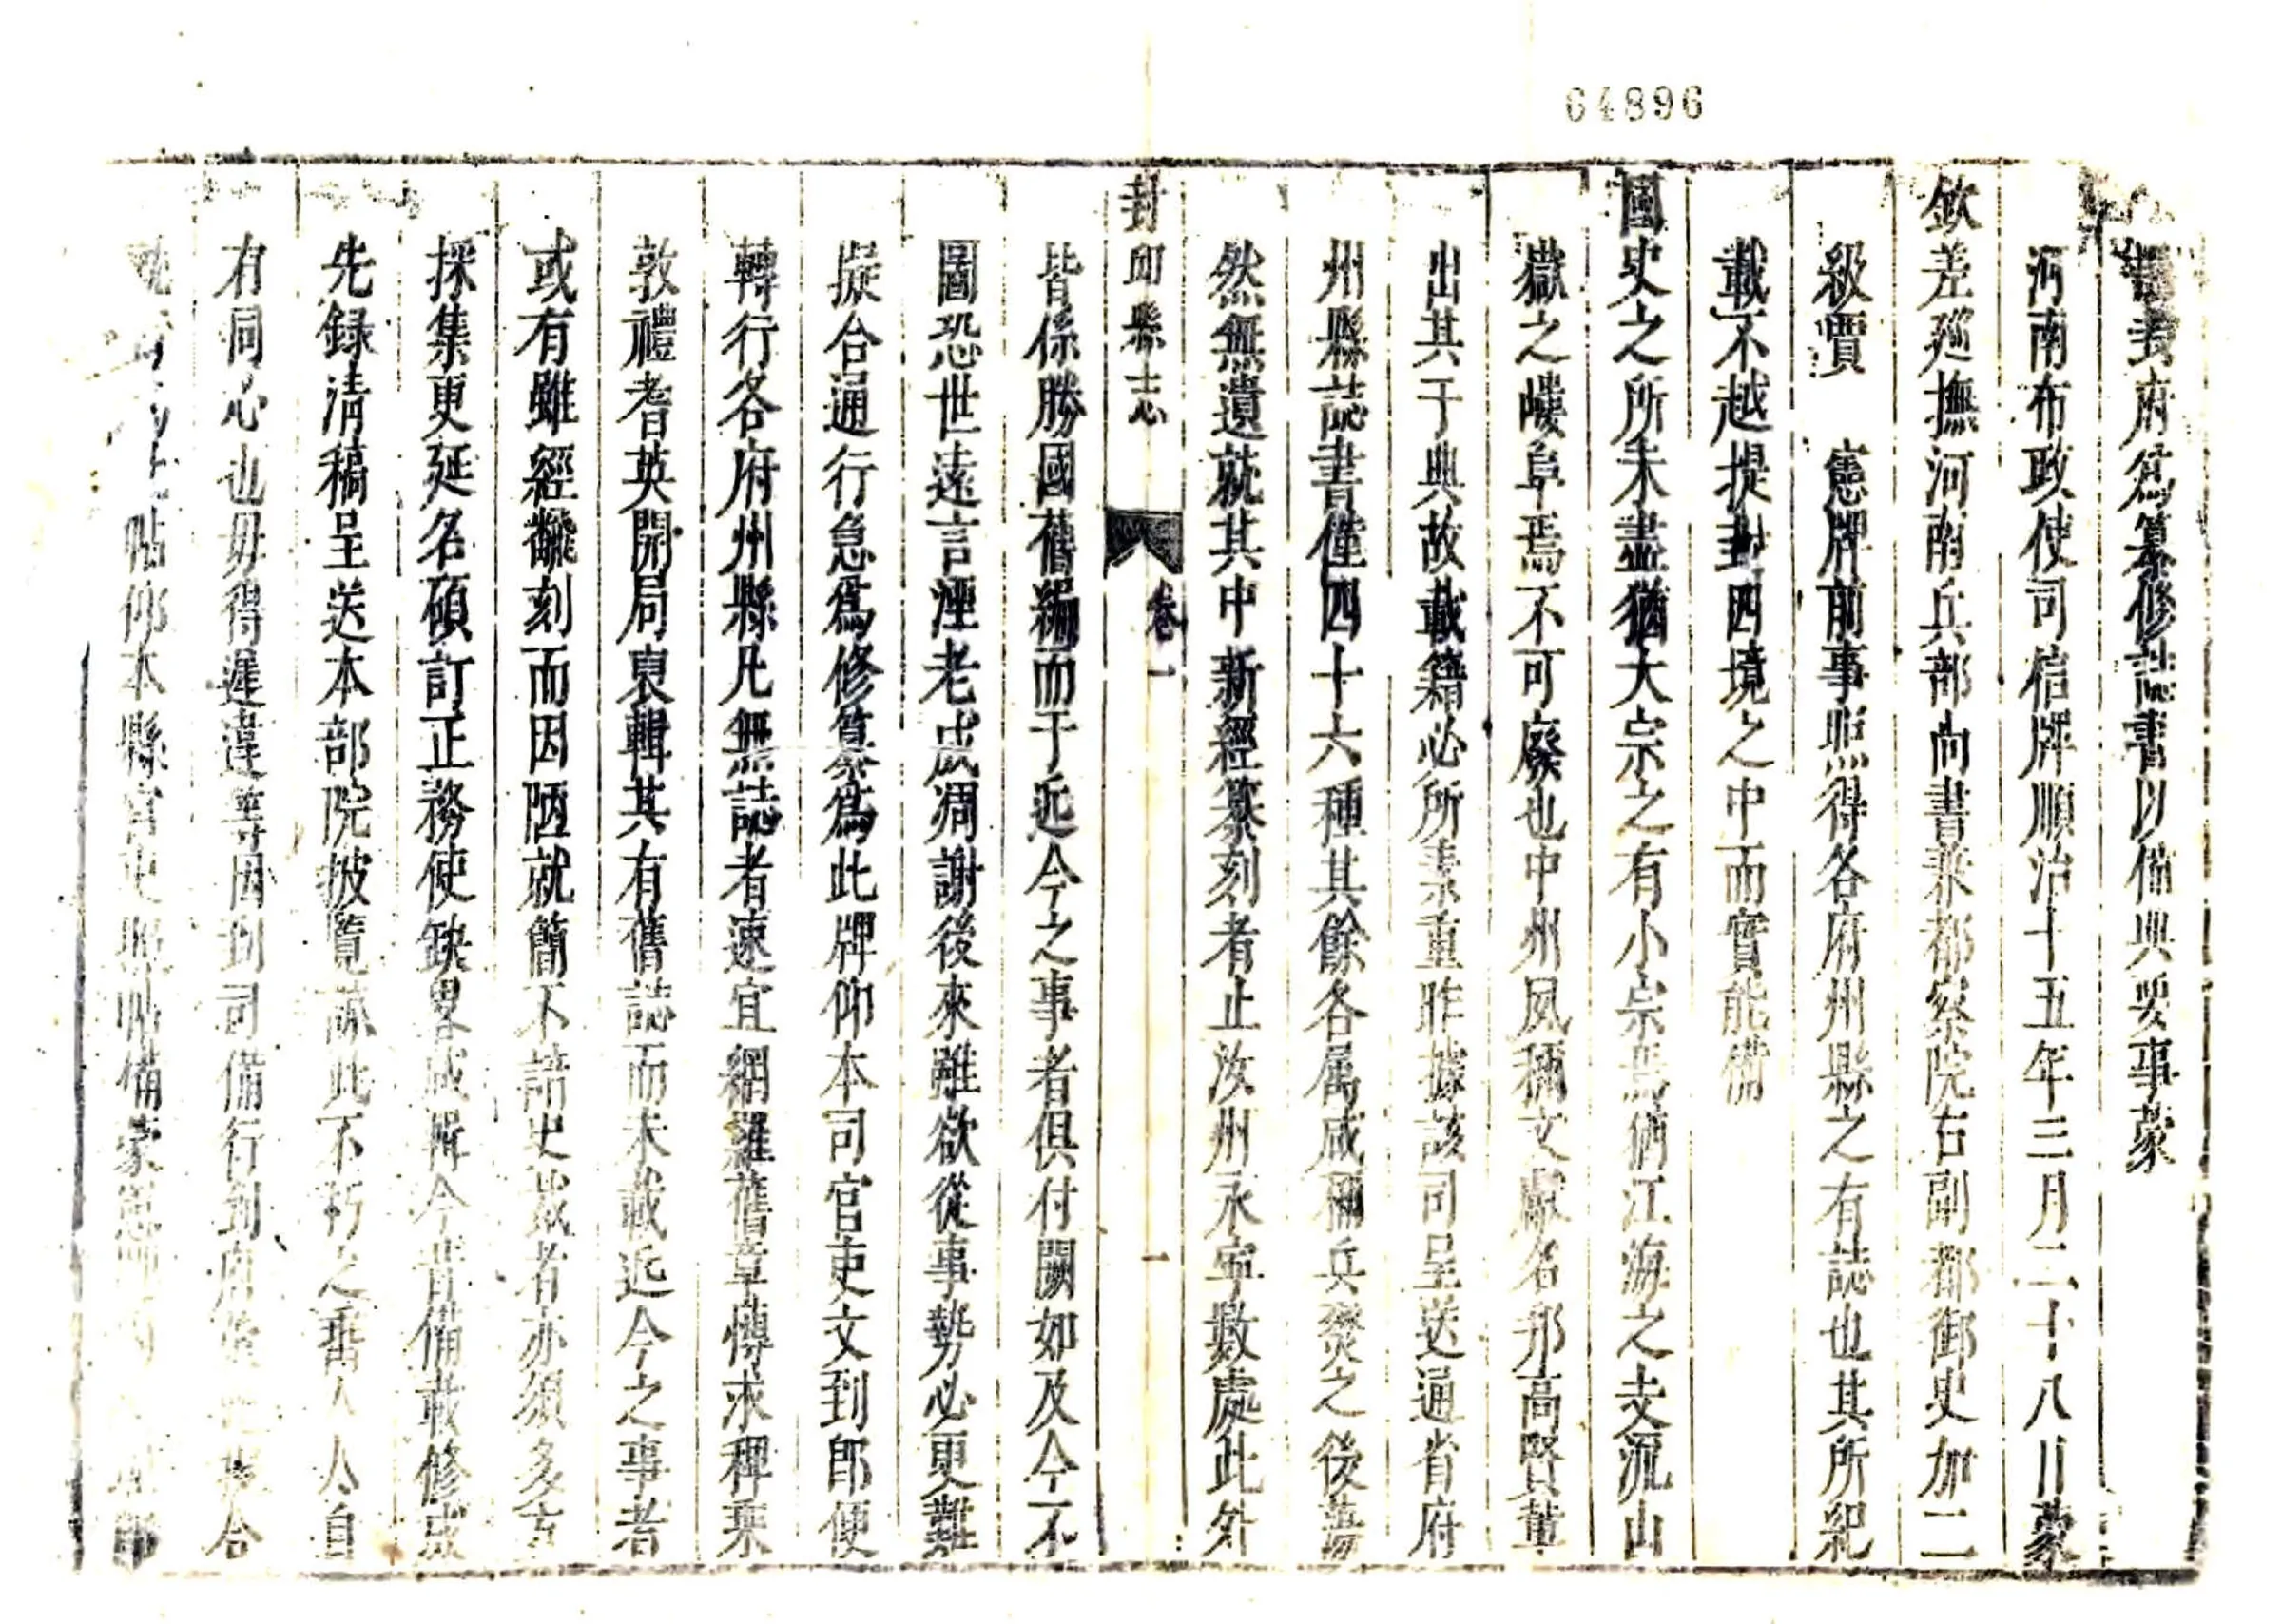 64896
封府爲纂修誌書以備典要事蒙
河南布政使司信牌順治十五年三月二十八日蒙
欽差廵撫河南兵部尚書兼都察院右副都御史加二
級賈　憲牌前事照得各府州縣之有誌也其所紀
載不越提封四境之中而實能備
國史之所未盡猶大宗之有小宗焉猶江海之支流山
嶽之嶁阜焉不可廢也中州夙稱文獻名邦高賢輩
出其于典故載籍必所素重昨據該司呈送通省府
州縣誌書僅四十六種其餘各属咸稱兵燹之後蕩
然無遺就其中新經纂刻者止汝州永寧數處此外
封邱縣志　卷一　一
皆係勝國舊編而于近今之事者俱付闕如及今不
圖恐世遠言湮老成凋謝後來雖欲從事勢必更難
擬合通行急爲修纂爲此牌仰本司官吏文到卽便
轉行各府州縣凡無誌者速宜網羅舊章愽求稗乗
敦禮耆英開局裒輯其有舊誌而未載近今之事者
或有雖經鐫刻而因陋就簡不諳史裁者亦須多方
採集更延名碩訂正務使缺畧咸備今昔備載修成
先録清稿呈送本部院披覽誠此不朽之譽人人自
有同心也毋得遲違等因到司備行到府
帖仰本縣官吏照帖備蒙憲